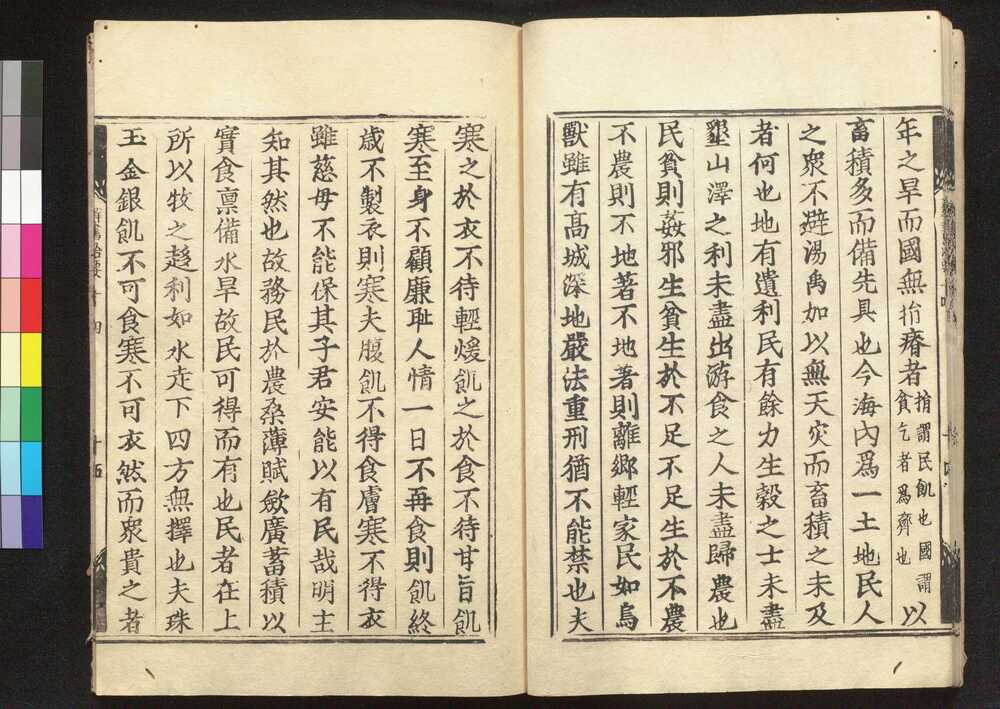 年之旱而國無捐瘠者捐謂民飢也國謂貧乞者爲瘠也以
畜積多而備先具也今海內爲一土地民人
之衆不避湯禹加以無天灾而畜積之未及
者何也地有遺利民有餘力生穀之士未盡
墾山澤之利未盡出游食之人未盡歸農也
民貧則姦邪生貧生於不足不足生於不農
不農則不地著不地著則離鄉輕家民如鳥
獸雖有高城深池嚴法重刑猶不能禁也夫
寒之於衣不待輕煖飢之於食不待甘旨飢
寒至身不顧廉耻人情一日不再食則飢終
歲不製衣則寒夫腹飢不得食膚寒不得衣
雖慈母不能保其子君安能以有民哉明主
知其然也故務民於農桑薄賦斂廣蓄積以
實食禀備水旱故民可得而有也民者在上
所以牧之趍利如水走下四方無擇也夫珠
玉金銀飢不可食寒不可衣然而衆貴之者
十四
十五